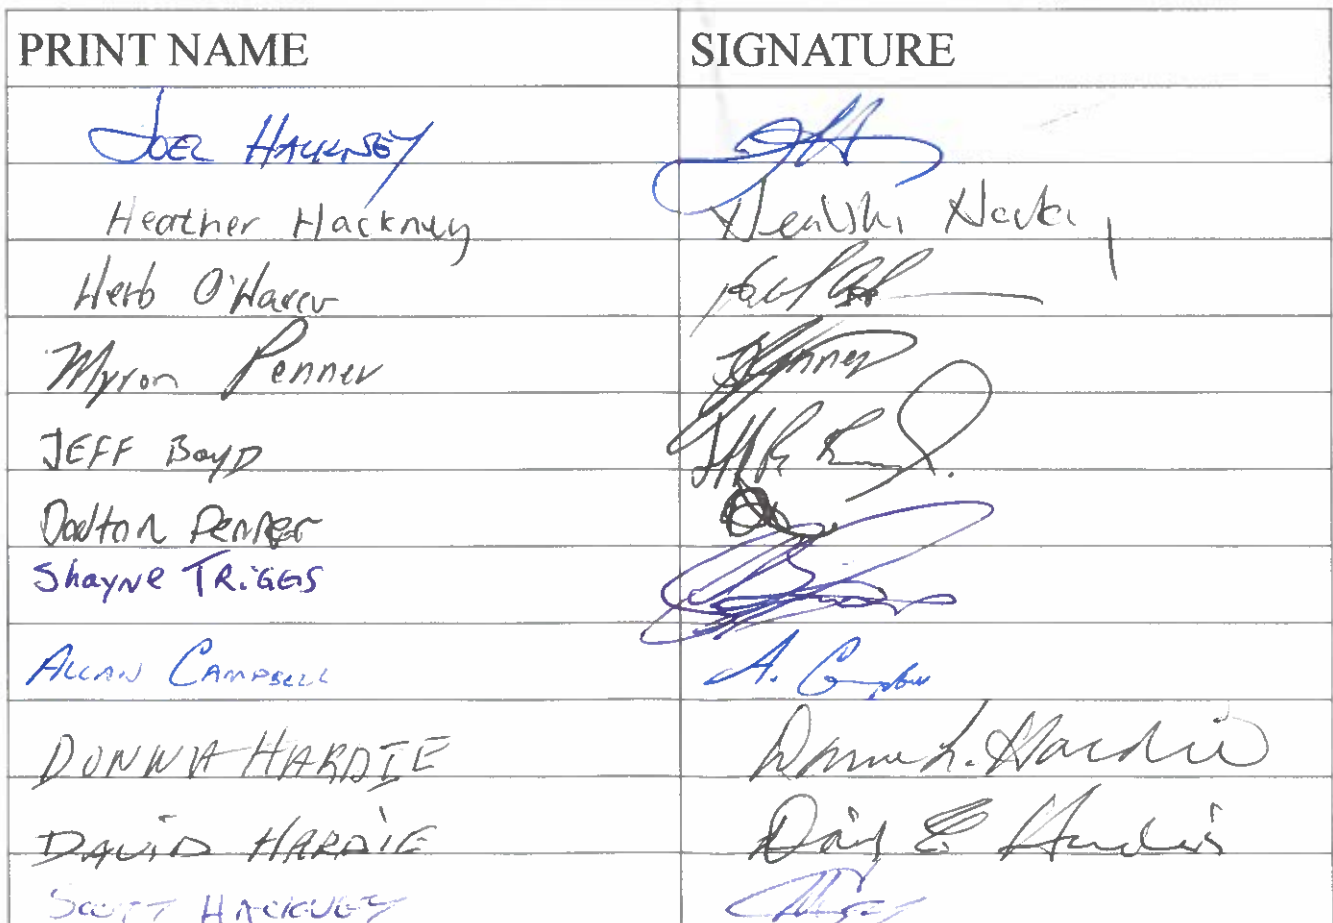 PRINT NAME SIGNATURE
JOEL HACKNEY
Heather Hackney
Herb O'Hara
Myron Penner Penner
JEFF BOYD
Dalton Penner
Shayne TRiGGS
ALLAN CAMPBELL A. Campbell
DONNA HARDIE Donna L. Hardie
DAViD HARDiE David E Hardie
SCOTT HACKNEY